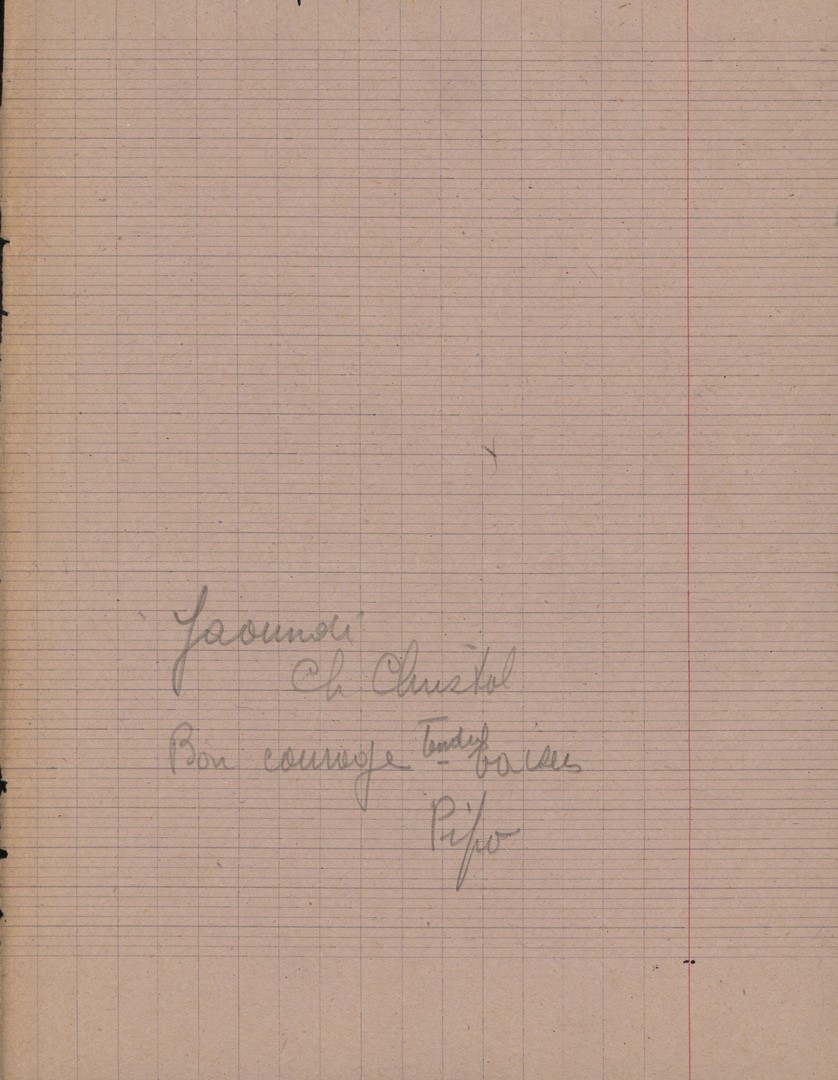 Yaoundé
Ch Christol
Bon courage Tendres baisers
Pipo